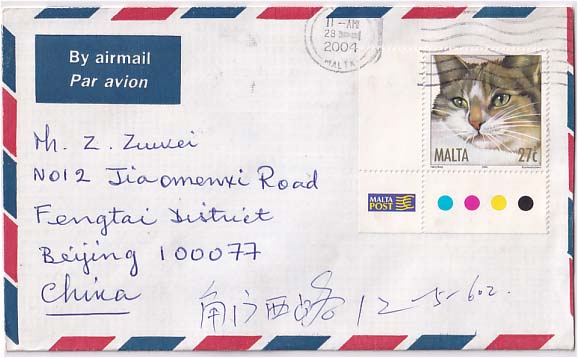 By airmail
Par avion
11-AM
28
2004
MALTA
MALTA 27c
MALTA
POST
Mr. Z. Zuwei
NO12 Jiaomenxi Road
Fengtai District
Beijing 100077
China
角门西路 12-5-602.